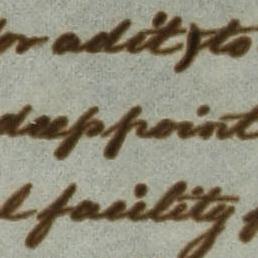 or adit) to
deep point
l facility